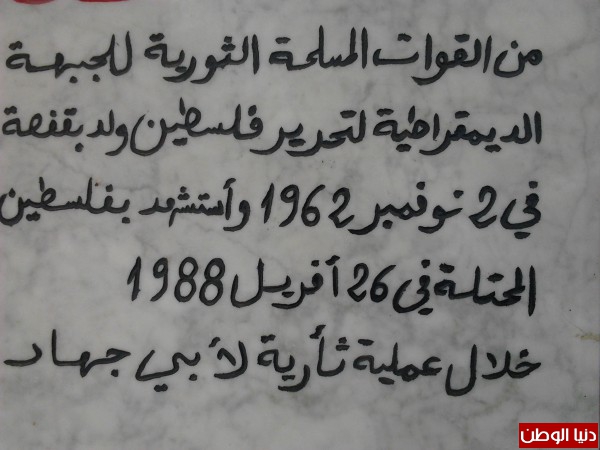 من القوات المسلحة الثورية للجبهة
الديمقراطية لتحرير فلسطين ولد بقفصة
في 2 نوفمبر 1962 وأستشهد بفلسطين
المحتلة في 26 أفريل 1988
خلال عملية ثأرية لأبي جهاد
دنيا الوطن